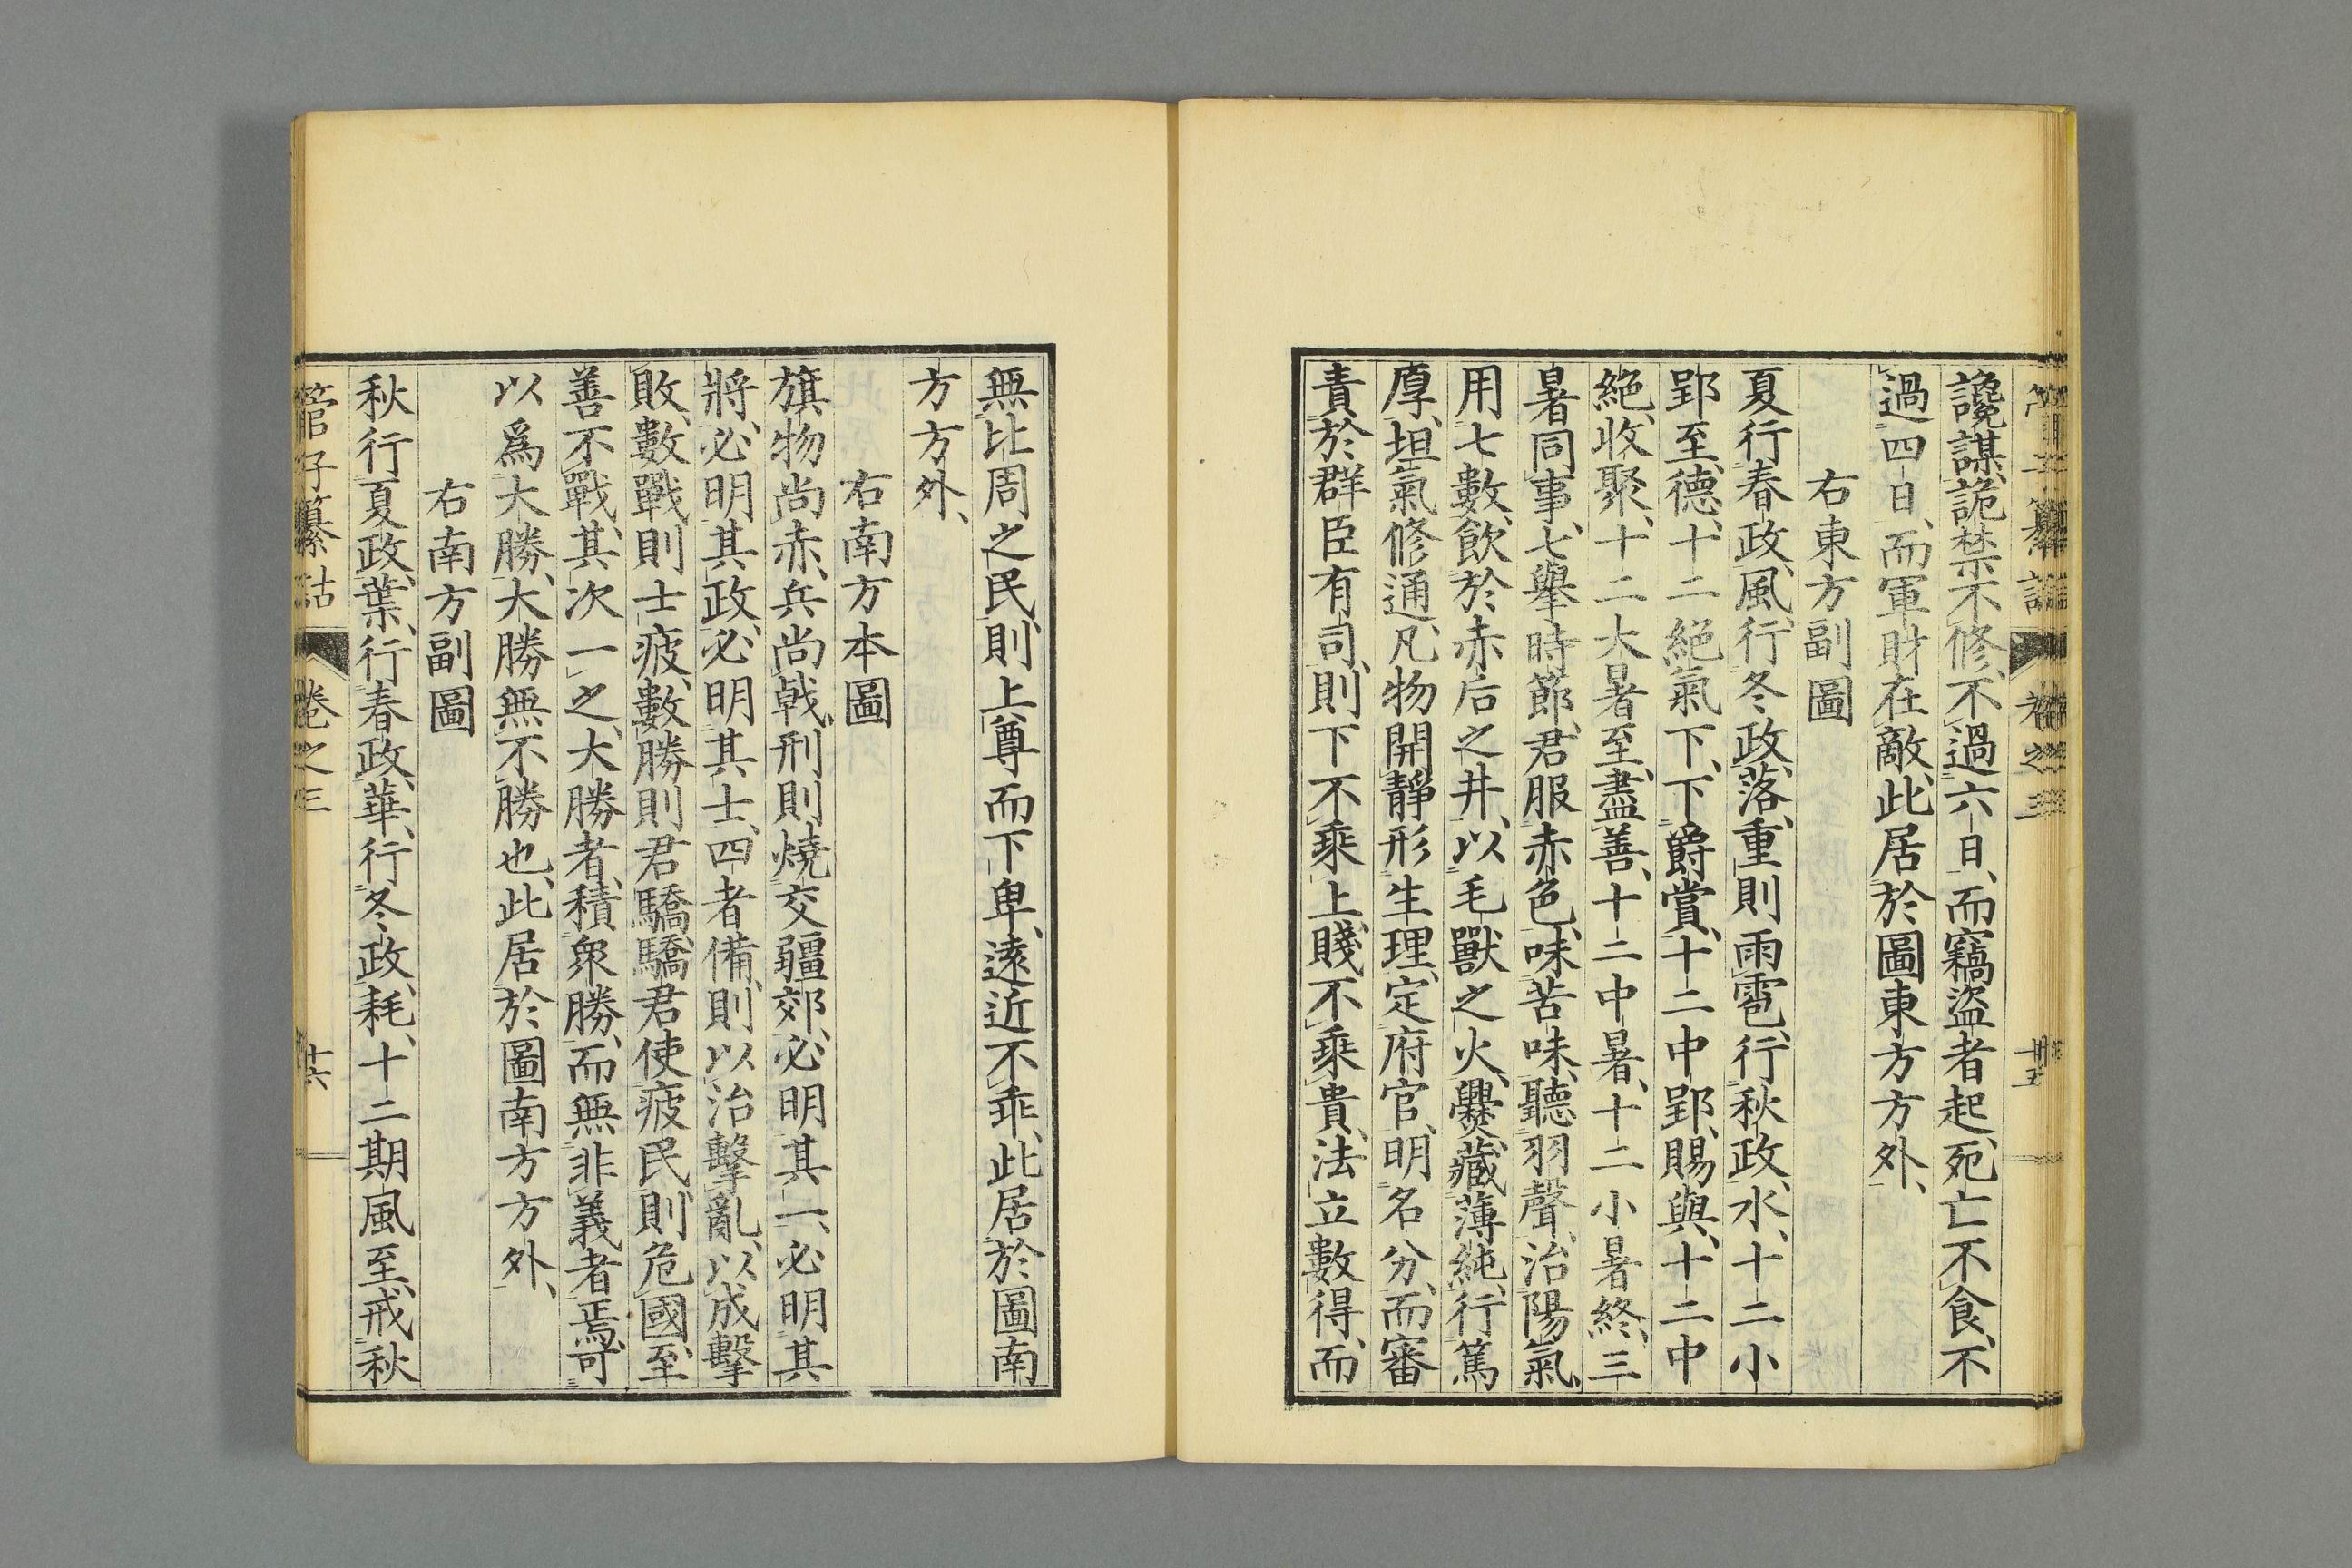 讒謀詭禁不修、不過六日、而竊盜者起、死亡不食、不
過四日、而軍財在敵、此居於圖東方方外、
右東方副圖
夏行春政、風、行冬政、落、重則雨雹、行秋政、水、十二小
郢、至德、十二絕氣下、下爵賞、十二中郢、賜與、十二中
絕、收聚、十二大暑至、盡善、十二中暑、十二小暑終、三
暑同事、七舉時節、君服赤色、味苦味、聽羽聲、治陽氣、
用七數、飲於赤后之井、以毛獸之火爨、藏薄純、行篤
厚、坦氣修通、凡物開靜形生理、定府官、明名分、而審
責於群臣有司、則下不乘上、賤不乘貴、法立數得、而
無比周之民、則上尊而下卑、遠近不乖、此居於圖南
方方外、
右南方本圖
旗物尚赤、兵尚戟、刑則燒交疆郊、必明其一、必明其
將、必明其政、必明其士、四者備、則以治擊亂、以成擊
敗、數戰則士疲、數勝則君驕、驕君使疲民、則危國、至
善不戰、其次一之、大勝者、積衆勝、而無非義者焉、可
以爲大勝、大勝無不勝也、此居於圖南方方外、
右南方副圖
秋行夏政、葉、行春政、華、行冬政、耗、十二期風至、戒秋
管子纂詁 卷之三 十六